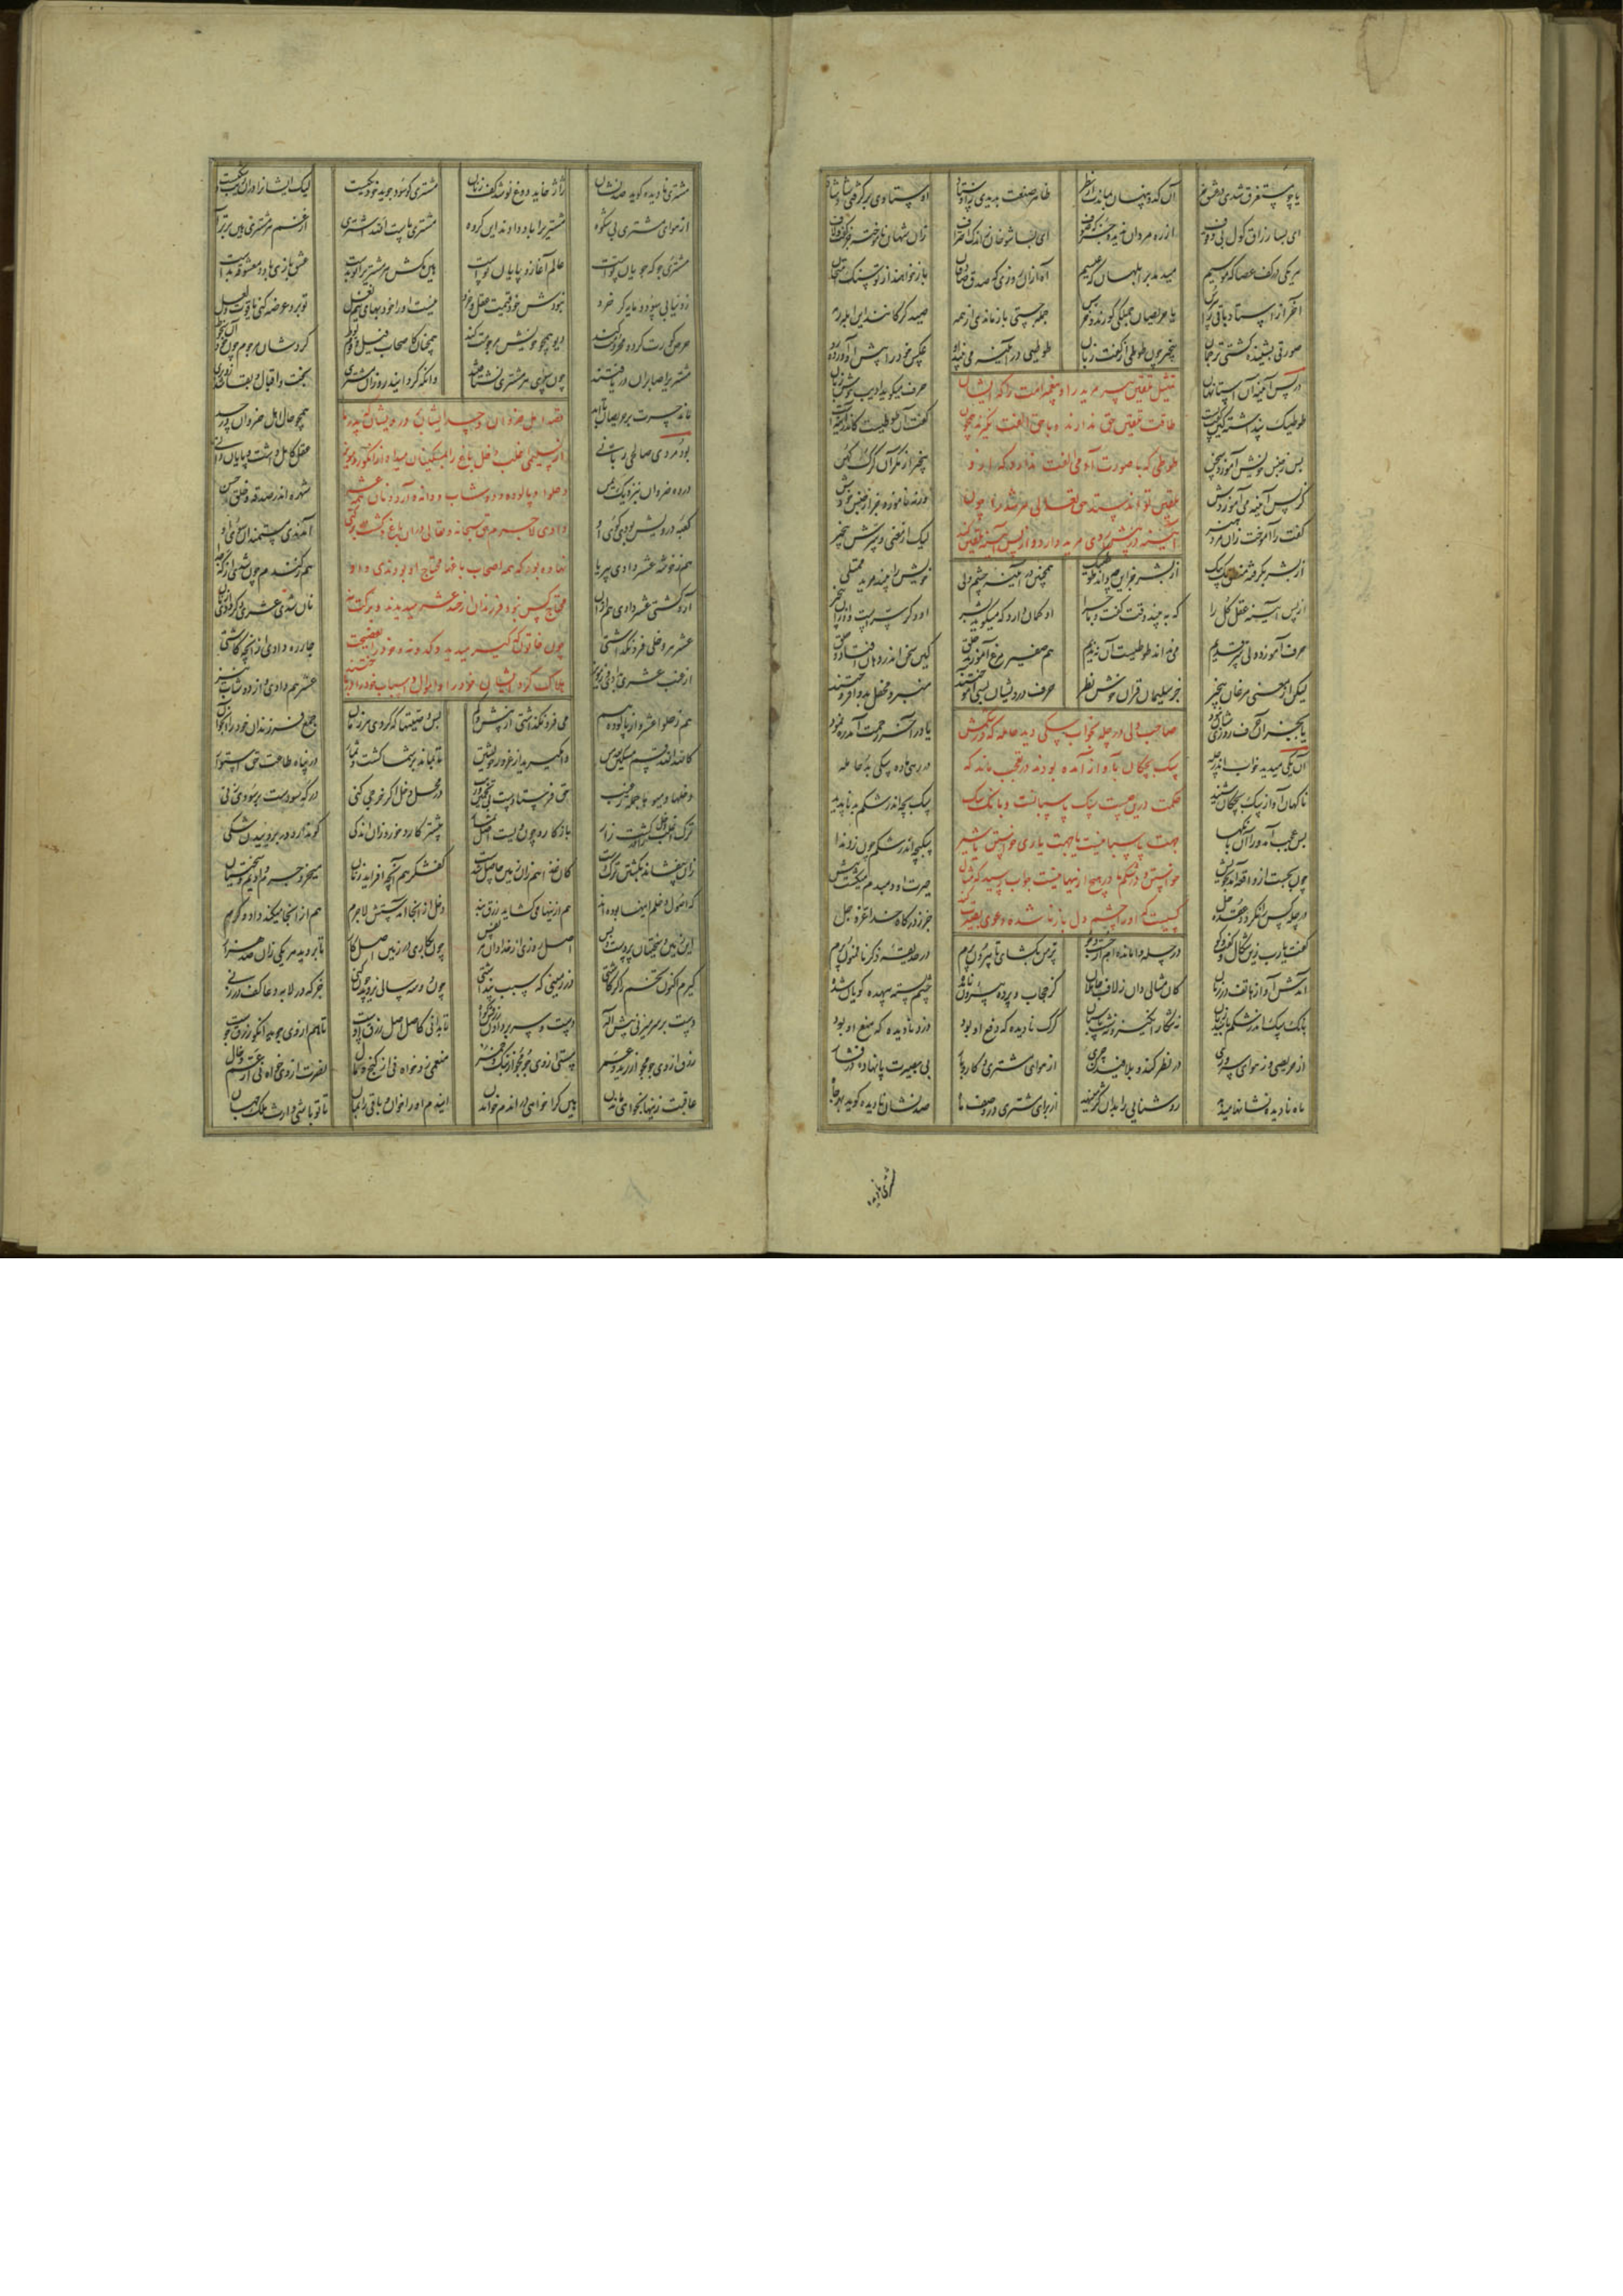 یا چو مستغرق شدی در عشق خر آن کدو پنهان بماندت از نظر ظاهر صنعت بدیدی ز اوستاد اوستادی برگرفتی شاد شاد
ای بسا زراق گول بی وقوف از ره مردان ندیده جز که صوف ای بسا شوخان ز اندک احتراف زان شهان ناموخته جز گفت و لاف
هر یکی در کف عصا که موسیم میدمد بر ابلهان که عیسیم آه ازان روزی که صدق صادقان باز خواهد از تو سنک امتحان
آخر از استاد باقی را بپرس یا حریصان جملکی کورند و خرس جمله جستی بازماندی از همه صید کرکانند این ابله رمه
صورتی بشنیده کشتی ترجمان بیخبر چون طوطی از کفت زبان طوطیی در آینه می بیند او عکس خود را پیش او آورده رو
تمثیل تلقین پیر مرید را و پیغمبر امت را که ایشان
طاقت تلقین حق ندارند و با حق الفت نکیرند چون
طوطی که با صورت آدمی الفت ندارد که ازو
تلقین تواند ستد حق تعالی مر شد را چون
آیینه در پیش روی مرید دارد و از پس آیینه تلقین کند
در پس آیینه آن استا نهان حرف میکوید ادیب خوش زبان
طوطیک پنداشته کین کفت پست کفتن آن طوطیست کاندر آینه است
پس ز جنس خویش آموزد سخن بیخبر از مکر آن کرک کهن
کز پس آیینه می آموزدش ورنه ناموزد جز از جنس خودش
کفت را آموخت زان مرد هنر لیک از معنی و سرش بیخبر
از بشر بکرفت منطق یک بیک از بشر جز این چه داند طوطیک همچنین در آینه جسم ولی خویش را بیند مرید ممتلی
از پس آیینه عقل کل را کی ببیند وقت کفت و ماجرا او کمان دارد که میکوید بشر وان دکر سرست و او زان بیخبر
حرف آموزد ولی سر قدیم می نداند طوطیست آن نی ندیم هم صفیر مرغ آموزند خلق کین سخن اندر دهان افتاد و حلق
لیک از معنی مرغان بیخبر جز سلیمان قران خوش نظر حرف درویشان بسی آموختند منبر و محفل بدو افروختند
صاحب دلی در چله بخواب سکی دید حامله که در شکمش
سک بچکان بآواز آمده بودند در تعجب ماند که
حکمت درین چیست سک پاسبانست و بانک سک
جهت پاسبانیست یا جهت یاری خواستن یا شیر
خواستن و در شکم در هیچ از ینها نیست جواب رسید که مثال
کسیست که او را چشم دل باز نا شده دعوی بصیرت کند
یا بجز آن حرفشان روزی نبود یا در آخر رحمت آمد ره نمود
آن یکی میدید خواب اندر چله در رهی ماده سکی بد حامله
ناکهان آواز سک بچکان شنید سک بچه اندر شکم بد ناپدید
بس عجب آمد ورا آن بانکها سک بچه اندر شکم چون زد ندا
چون بجست از واقعه آمد بخویش حیرت او دم بدم میکشت بیش
در چله کس نی که کردد عقده حل جز که درکاه خدا عز و جل
کفت یارب زین شکال و کفت و کو در چله وا مانده ام از ذکر تو پر من بکشای تا پران شوم در حدیقه ذکر
آمدش آواز هاتف در زمان کان مثالی دان ز لاف جاهلان کز حجاب و پرده بیرون نامده چشم بسته بیهده کویان شده
بانک سک اندر شکم باشد زیان نه شکار انکیز و نه شب پاسبان کرک نادیده که دفع او بود دزد نادیده که منع او بود
از حریصی وز هوای سروری در نظر کند و بلافیدن جری از هوای مشتری و کاروبار بی بصیرت پا نهاده در فشار
ماه نادیده نشانها میدهد روشنایی را بدان کژ مینهد از برای مشتری در وصف ماه صد نشان نادیده کوید بهر جاه
مشتری نادیده
مشتری نادیده کوید صد نشان ژاژ خاید دوغ نوشد کف زنان مشتری کو سود جوید خود یکیست لیک ایشان را در آن ریب و شکیست
از هوای مشتری بی شکوه مشتری را باد دادند این کروه مشتری ماست الله اشتری از غم هر مشتری هین برتر آ
مشتری جو که جویان تو است عالم آغاز و پایان تو است هین مکش هر مشتری را تو بدست عشق بازی با دو معشوقه بدست
زو نیابی سود و مایه کر خرد نبودش خود قیمت عقل و خرد نیست او را خود بهای نیم نعل تو برو عرضه کنی یاقوت و لعل
حرص کورت کرده محروم کند دیو همچو خویش مرجومت کند همچنان کاصحاب فیل و قوم لوط کردشان مرجوم چون خود آن سخوط
مشتری را صابران دریافتند چون سوی هر مشتری نشتافتند وانکه کردانید رو زان مشتری بخت و اقبال و بقا شد زو بری
قصه اهل ضروان و حسد ایشان بر درویشان که پدر ما
از سلیمی اغلب دخل باغ را بمسکینان میداد از انکور و مویز
و حلوا و پالوده و دوشاب و دانه و آرد و نان عشر
دادی لاجرم حق سبحانه و تعالی در آن باغ و کشت برکتی
نهاده بود که همه اصحاب باغها محتاج او بودندی و او
محتاج کس نبود فرزندان خرج عشر میدیدند و برکت نه
ماند حسرت بر حریصان تا ابد همچو حال اهل ضروان در حسد
بود مردی صالحی ربانیی عقل کامل داشت و پایان دانیی
در ده ضروان بنزدیک یمن شهره اندر صدقه و خلق حسن
کعبه درویش بودی کوی او آمدندی مستمندان سوی او
هم ز خوشه عشر دادی بی ریا هم ز کندم چون شدی از که جدا
آرد کشتی عشر دادی هم از آن نان شدی عشر دکر دادی ز نان
عشر هر دخلی فرو نکذاشتی چاره دادی زانچه کاشتی
از عنب عشری بدادی وز مویز عشر هم دادی وز دوشاب نیز
هم ز حلوا عشر و از پالوده هم می فرو نکذاشتی از بیش و کم بس وصیتها که کردی هر زمان جمع فرزندان خود را آن جوان
کالله الله قسم مسکین بعد من وا مکیرید از غرور خویشتن تا بماند بر شما کشت و ثمار در پناه طاعت حق استوار
دخلها و میوها جمله ز غیب حق فرستادست بی تخمین و ریب در محل دخل اکر خرجی کنی درکه سودست بر سودی زنی
ترک اغلب دخل را در کشت زار باز کارد چون ویست اصل ثمار بیشتر کارد خورد زان اندکی کو ندارد در بروییدن شکی
زان بیفشاند بکشتن ترک دست کان غله هم زان زمین حاصل شدست کفشکر هم آنچه افزاید ز نان میخرد چرم و ادیم و سختیان
که اصول دخلم اینها بوده اند هم ازینها می کشاید رزق بند دخل از آنجا آمدستش لاجرم هم از آنجا میکند داد و کرم
این زمین و سختیان پرده ست و بس اصل روزی از خدا دان هر نفس چون بکاری در زمین اصل کار تا بروید هر یکی را صد هزار
کیرم اکنون تخم را کر کاشتی در زمینی که سبب پنداشتی چون دو سه سال آن نروید چون کنی جز که در لابه و دعا کف در زنی
دست بر سر میزنی پیش اله دست و سر بر دادن رزقش کواه تا بدانی کاصل اصل رزق اوست تا هم از وی جوید آنکو رزق جوست
رزق از وی جو مجو از زید و عمر مستی از وی جو مجو از بنک و خمر منعمی زو خواه نی از کنج و مال نصرت از وی خواه نی از عم و خال
عاقبت زینها بخواهی ماندن هین کرا خواهی در آن دم خواندن این دم او را خوان و باقی را بمان تا تو باشی وارث ملک جهان